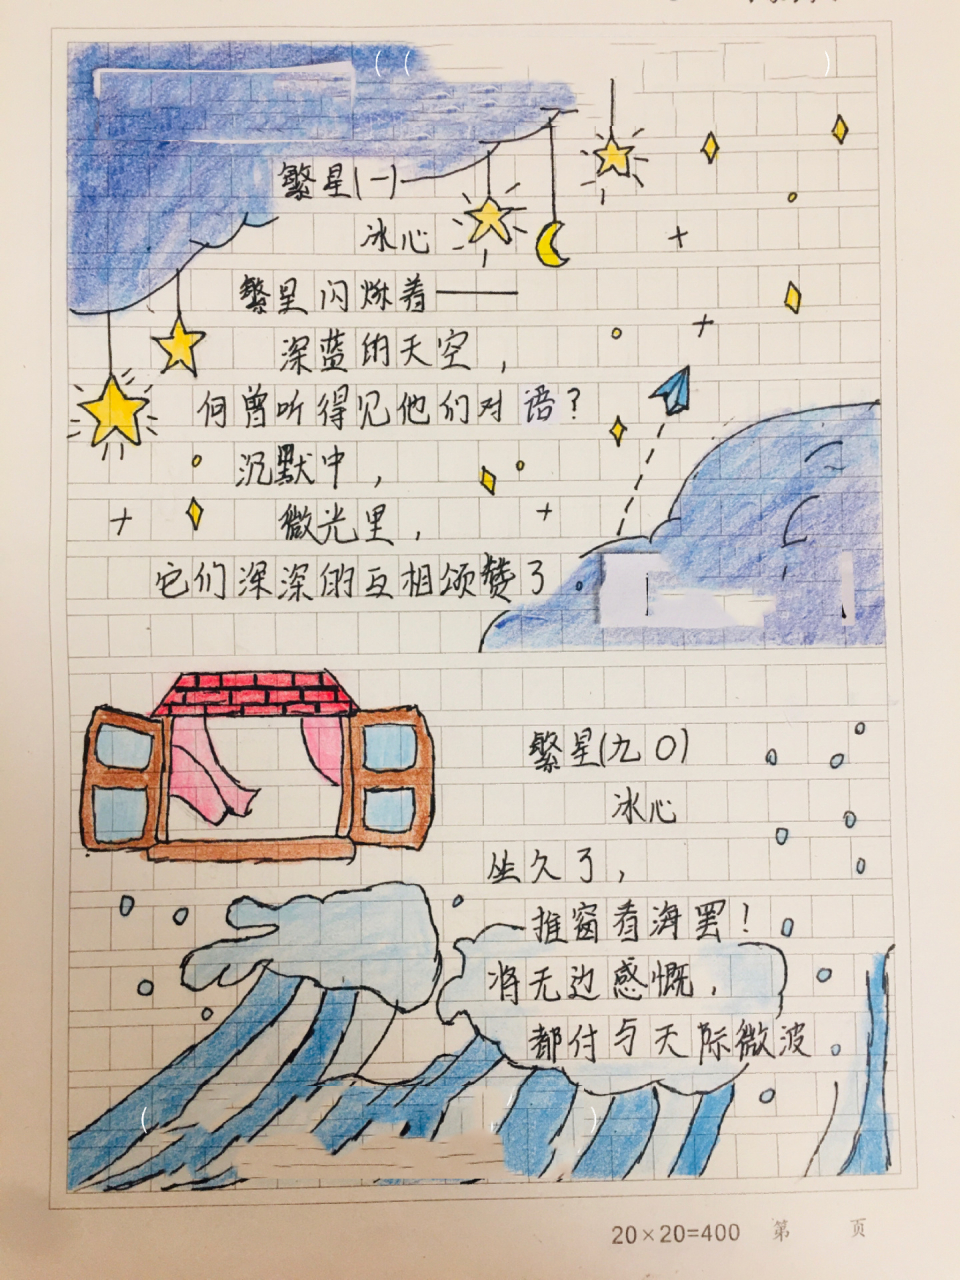 繁星(一)
冰心
繁星闪烁着——
深蓝的天空，
何曾听得见他们对语？
沉默中，
微光里，
它们深深的互相颂赞了。
繁星(九〇)
冰心
坐久了，
推窗看海罢！
将无边感慨，
都付与天际微波。
20×20=400 第 页